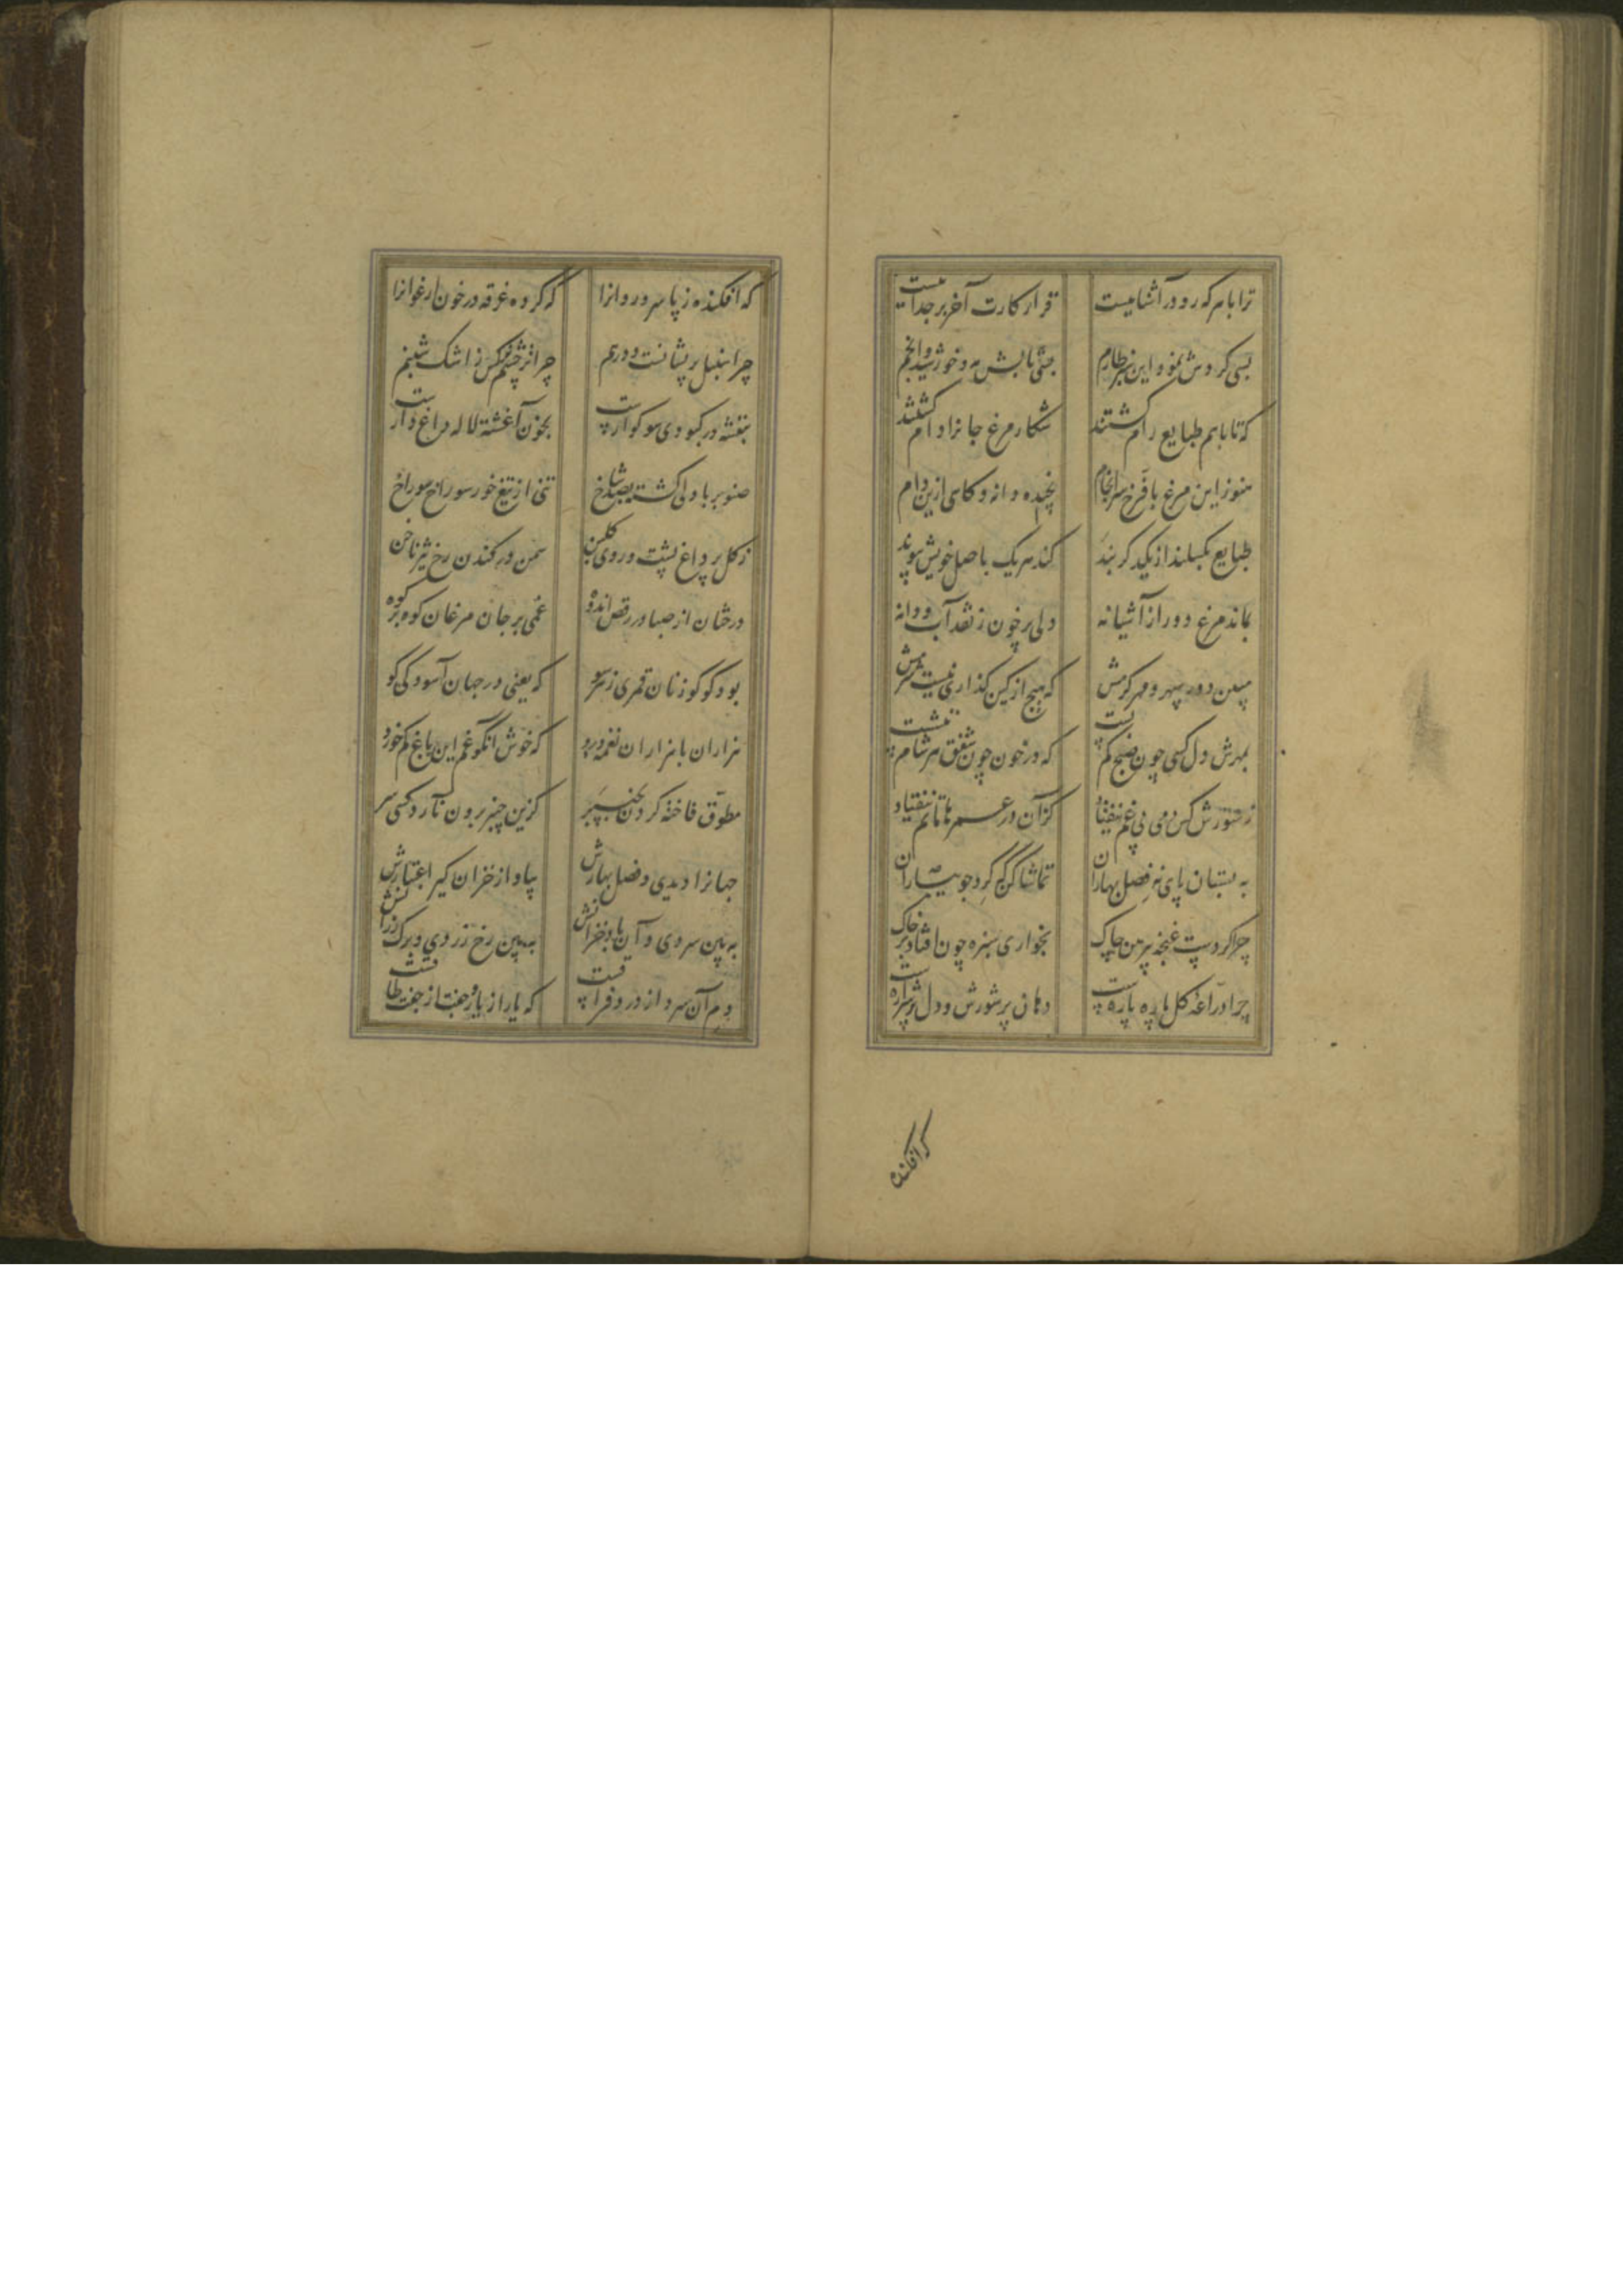 ترا با هر که رو در آشناییست قرار کارت آخر بر جداییست
بسی گردش نمود این سبز طارم بسی تابش مه و خورشید و انجم
که تا با هم طبایع رام گشتند شکار مرغ جانرا دام گشتند
هنوز این مرغ با فرخ سرانجام نچیده دانه و کامی ازین دام
طبایع بگسلند از یکدگر بند کند هر یک باصل خویش پیوند
بماند مرغ دور از آشیانه دلی پر خون ز نقد آب و دانه
مبین دور سپهر و مهر گرمش که هیچ از کین گذاری نیست شرمش
بمهرش دل کسی چون صبح کم بست که در خون چون شفق هر شام ننشست
ز شورش کس دمی بی غم نیفتاد کزآن در عمرها ماتم نیفتاد
به بستان پای نه فصل بهاران تماشا کن گرد جویباران
چرا کردست غنچه پیرهن چاک بخواری سبزه چون افتاد بر خاک
چرا دراعهٔ گل پاره پاره ست دهان پر شورش و دل پر شراره ست
که افکنده
که افکنده ز پا سرو روانرا که کرده غرقه در خون ارغوانرا
چرا سنبل پریشانست و درهم چرا پر چشم نرگس ز اشک شبنم
بنفشه در کبودی سوگوارست بخون آغشته لاله داغ دارست
صنوبر با دلی گشته بصد شاخ تنی از تیغ خور سوراخ سوراخ
ز گل پر داغ پشت و روی گلبن سمن در کندن رخ تیز ناخن
درختان از صبا در رقص اندوه غمی بر جان مرغان کوه بر کوه
بود کوکو زنان قمری ز هر سو که یعنی در جهان آسودگی کو
هزاران با هزاران نغمه و درد که خوش آنکو غم این باغ کم خورد
مطوق فاخته گردن بچنبر کزین چنبر برون نآرد کسی سر
جهانرا دیدی و فصل بهارش بیا و از خزان گیر اعتبارش
به بین سردی و آن باد خزانش به بین رخ زردی و برگ رزانش
دم آن سرد از درد فراقست که یار از یار و جفت از جفت طاقست